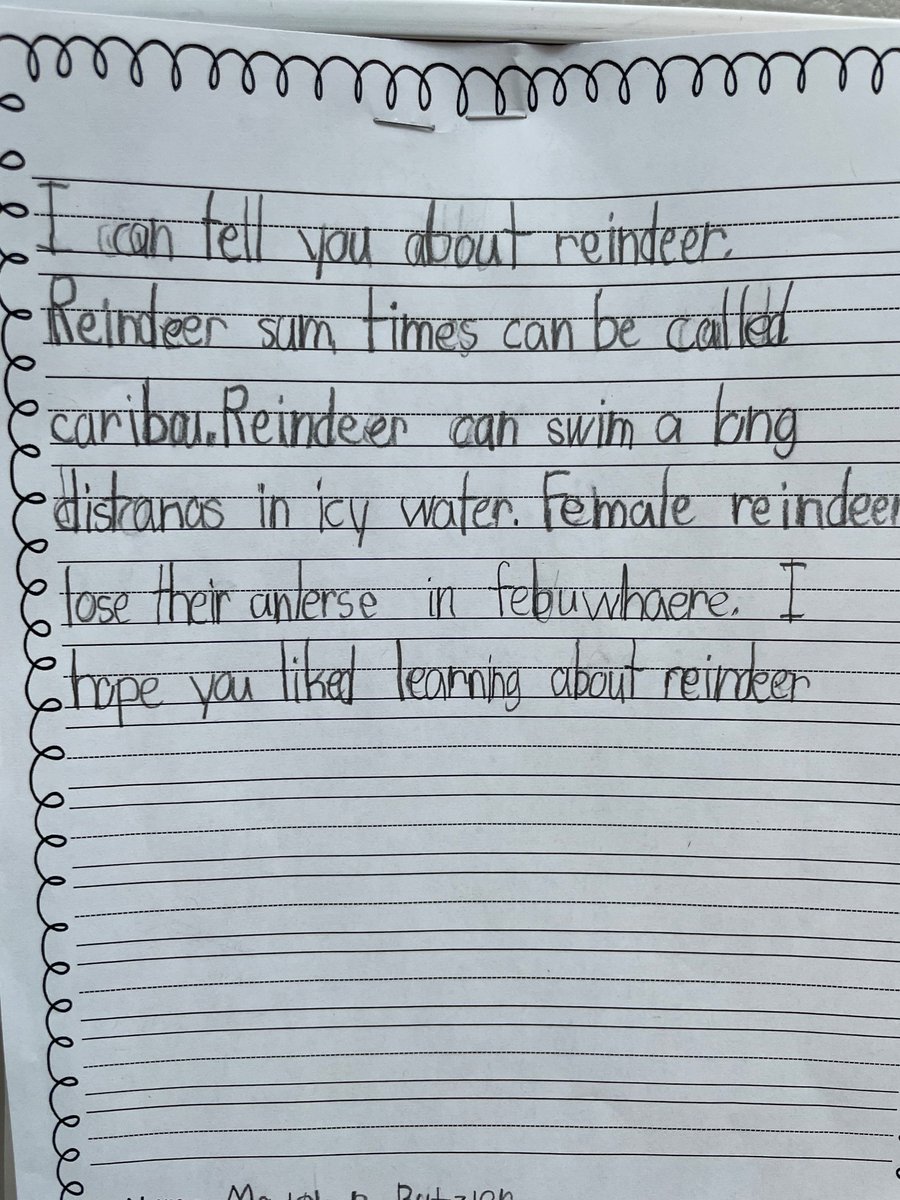 I can tell you about reindeer.
Reindeer sum times can be called
caribou. Reindeer can swim a long
distanas in icy water. Female reindeer
lose their anlerse in febuwhaere. I
hope you liked learning about reindeer